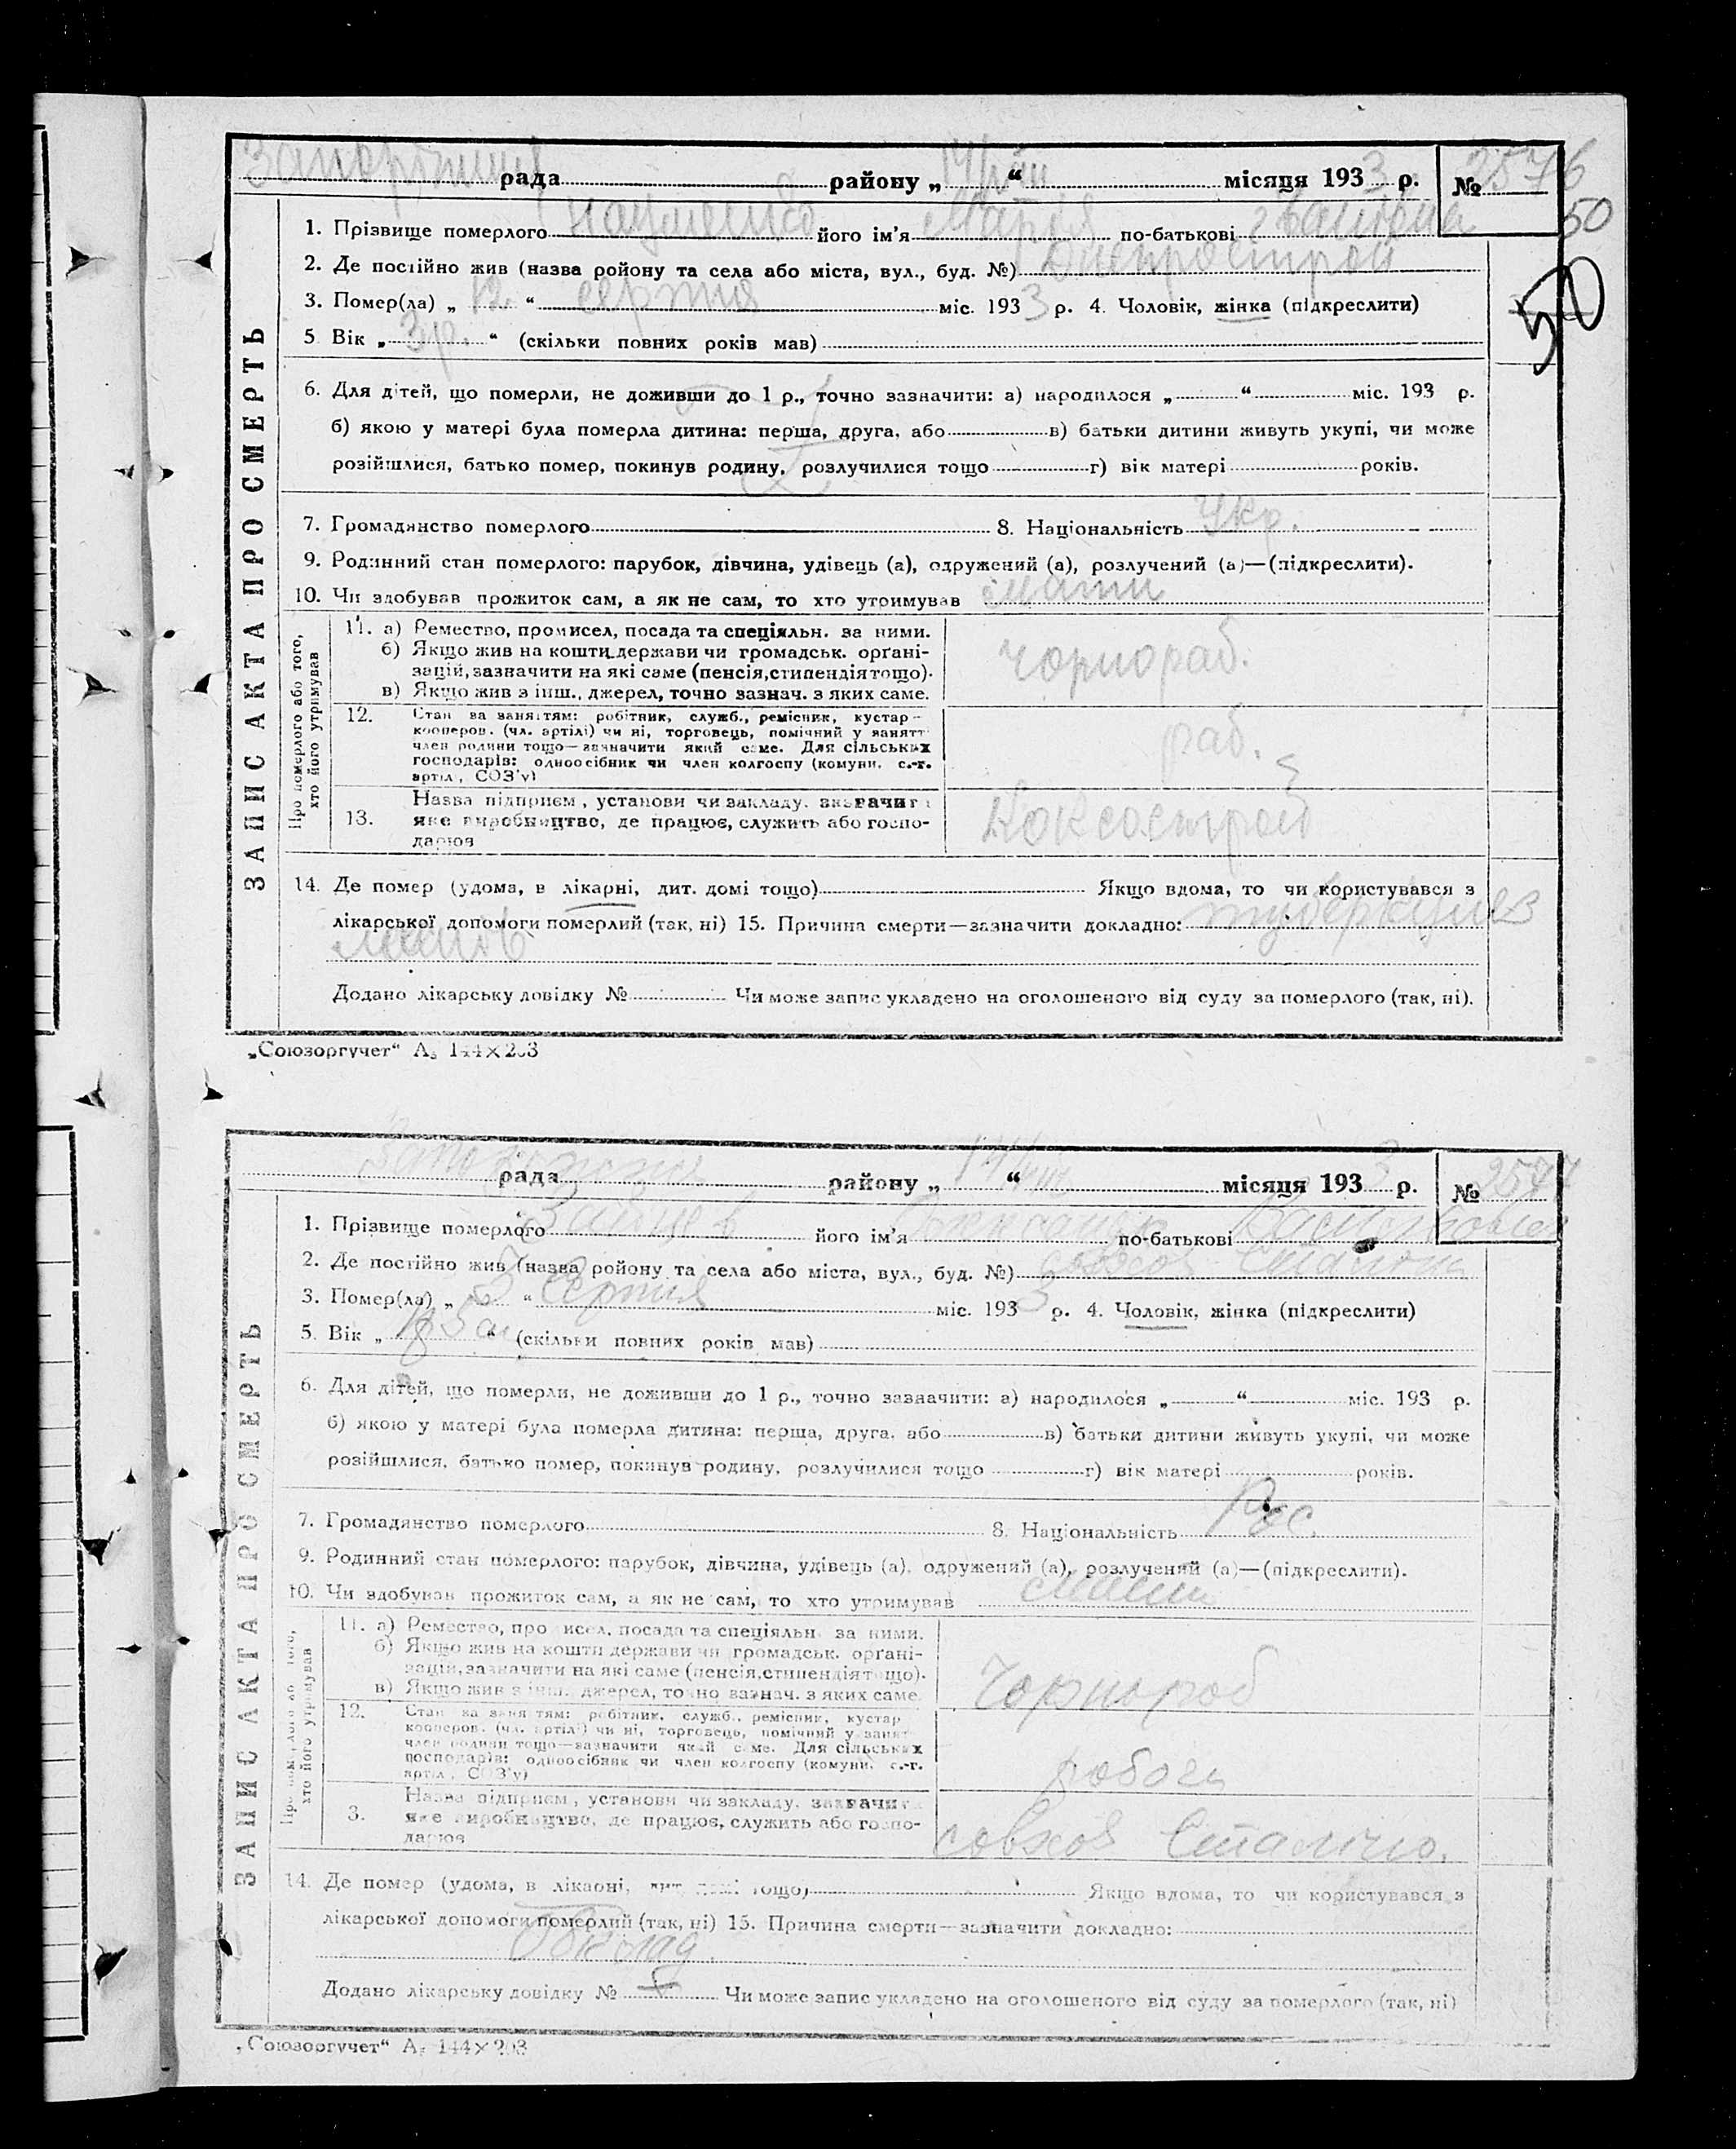 рада району „ 14 “ місяця 1933 р. № 2576
50
50
1. Прізвище померлого Науменко його ім'я Марія по-батькові Іванівна
2. Де постійно жив (назва ройону та села або міста, вул., буд. №) Днепрострой
3. Помер(ла) „ 12. “ серпня міс. 1933 р. 4. Чоловік, жінка (підкреслити)
5 Вік „ 3 р. “ (скільки повних років мав)
6. Для дітей, що померли, не доживши до 1 р., точно зазначити: а) народилося „ “ міс. 193 р.
б) якою у матері була померла дитина: перша, друга, або в) батьки дитини живуть укупі, чи може
розійшлися, батько помер, покинув родину, розлучилися тощо г) вік матері років.
7. Громадянство померлого 8. Національність Укр.
9. Родинний стан померлого: парубок, дівчина, удівець (а), одружений (а), розлучений (а)—(підкреслити).
10. Чи здобував прожиток сам, а як не сам, то хто утримував мати
ЗАПИС АКТА ПРО СМЕРТЬ
Про померлого або того,
хто його утримував
11. а) Ремество, промисел, посада та спеціяльн. за ними.
б) Якщо жив на кошти держави чи громадськ. орґані-
зацій, зазначити на які саме (пенсія, стипендія тощо).
в) Якщо жив з інш., джерел, точно зазнач. з яких саме.
чорнораб.
12. Стан за заняттям: робітник, служб., ремісник, кустар-
кооперов. (чл. артілі) чи ні, торговець, помічний у занятт
член родини тощо—зазначити який саме. Для сільських
господарів: одноосібник чи член колгоспу (комуни, с.-г.
артіл, СОЗ'у)
раб.
13. Назва підприєм, установи чи закладу, зазначит
яке виробництво, де працює, служить або госпо-
дарює
Коксострой
14. Де помер (удома, в лікарні, дит. домі тощо) Якщо вдома, то чи користувався з
лікарської допомоги померлий (так, ні) 15. Причина смерти—зазначити докладно: туберкульоз
Додано лікарську довідку № Чи може запис укладено на оголошеного від суду за померлого (так, ні).
„Союзоргучет“ А₅ 144×203
рада району „ 14 “ місяця 1933 р. № 2577
1. Прізвище померлого Зайцев його ім'я по-батькові
2. Де постійно жив (назва ройону та села або міста, вул., буд. №) совхоз Сталіна
3. Помер(ла) „ “ Серпня міс. 1933 р. 4. Чоловік, жінка (підкреслити)
5. Вік „ “ (скільки повних років мав)
6. Для дітей, що померли, не доживши до 1 р., точно зазначити: а) народилося „ “ міс. 193 р.
б) якою у матері була померла дитина: перша, друга, або в) батьки дитини живуть укупі, чи може
розійшлися, батько помер, покинув родину, розлучилися тощо г) вік матері років.
7. Громадянство померлого 8. Національність Рос.
9. Родинний стан померлого: парубок, дівчина, удівець (а), одружений (а), розлучений (а)—(підкреслити).
10. Чи здобував прожиток сам, а як не сам, то хто утримував мати
ЗАПИС АКТА ПРО СМЕРТЬ
хто його утримував
11. а) Ремество, промисел, посада та спеціяльн. за ними.
б) Якщо жив на кошти держави чи громадськ. орґані-
зацій, зазначити на які саме (пенсія, стипендія тощо).
в) Якщо жив з інш. джерел, точно зазнач. з яких саме.
Чорнороб
12. Стан за заняттям: робітник, служб., ремісник, кустар
кооперов. (чл. артілі) чи ні, торговець, помічний у занят
член родини тощо—зазначити який саме. Для сільських
господарів: одноосібник чи член колгоспу (комуни, с.-г.
артіл, СОЗ'у)
3. Назва підприєм, установи чи закладу, зазначит
яке виробництво, де працює, служить або госпо-
дарює
совхоз Сталіно.
14. Де помер (удома, в лікарні, дит. домі тощо) Якщо вдома, то чи користувався з
лікарської допомоги померлий (так, ні) 15. Причина смерти—зазначити докладно:
Додано лікарську довідку № Чи може запис укладено на оголошеного від суду за померлого (так, ні)
„Союзоргучет“ А₅ 144×203